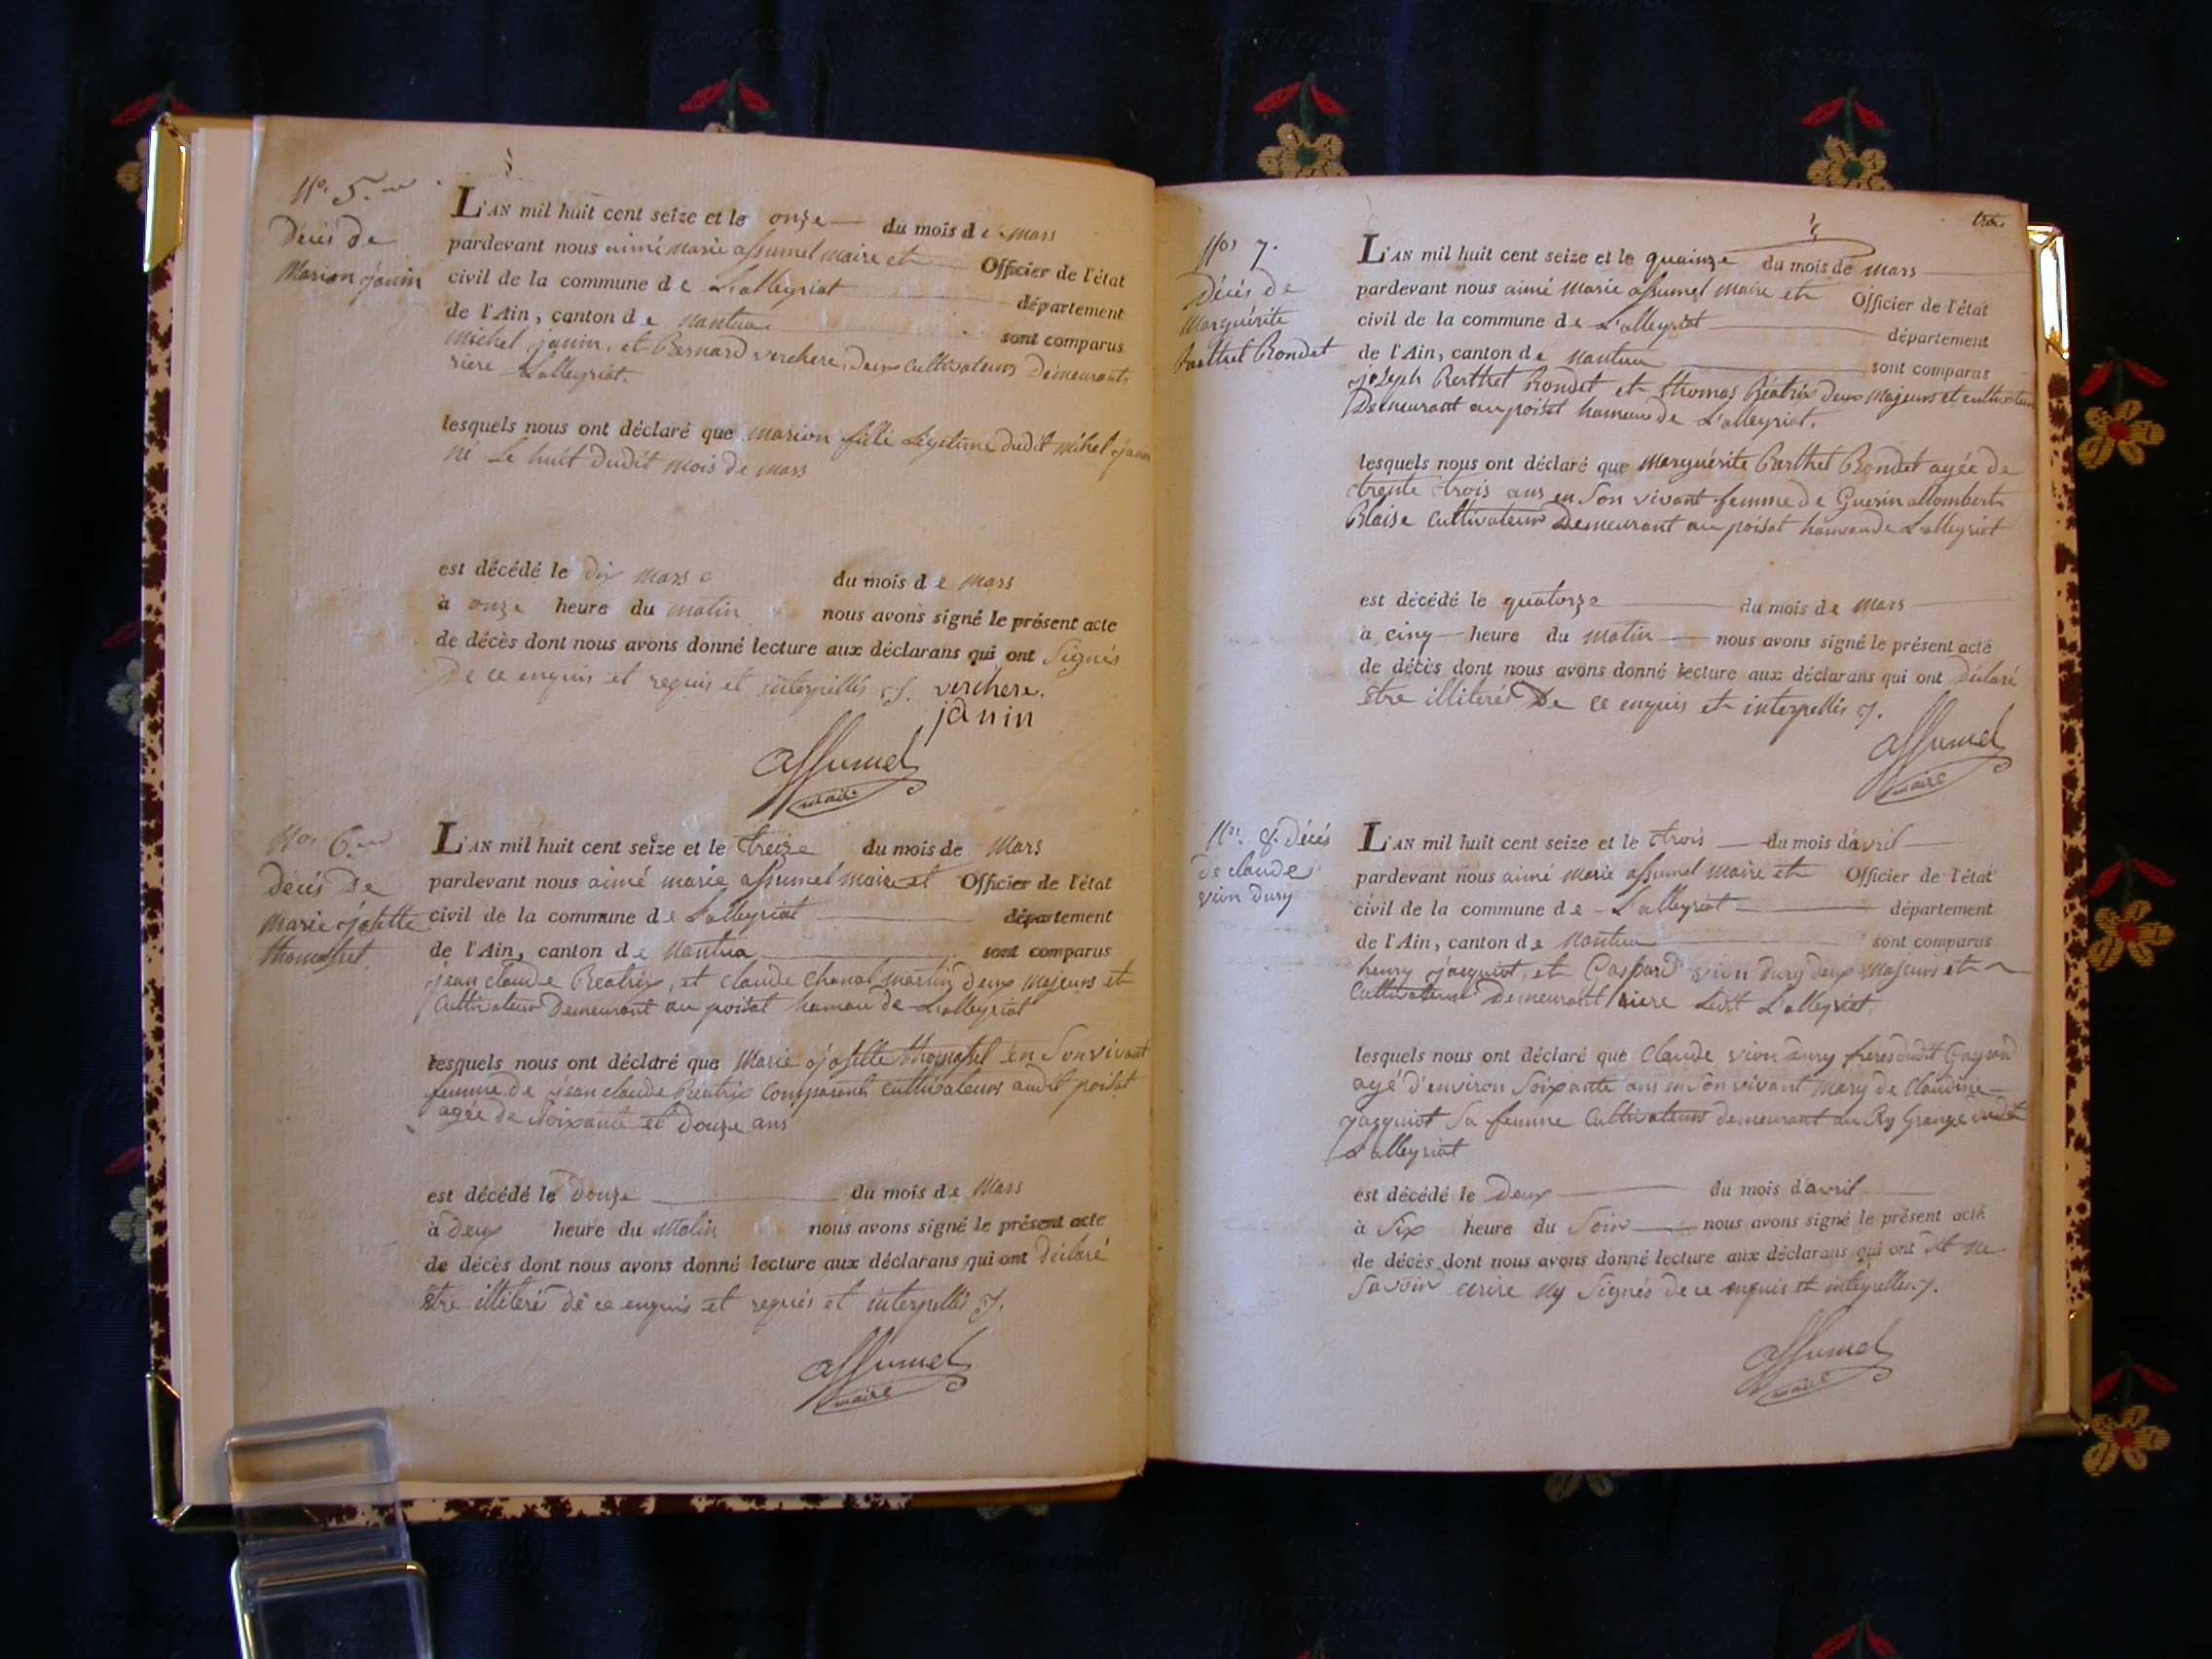 No. 5.me
Décès de
Marion janin
L'AN mil huit cent seize et le onze du mois de mars
pardevant nous aimé marie assumel maire et Officier de l'état
civil de la commune de Lalleyriat département
de l'Ain, canton de nantua sont comparus
michel janin, et Bernard verchere, deux cultivateurs demeurants
riere Lalleyriat.
lesquels nous ont déclaré que marion fille Légitime dudit mihel janin
né Le huit dudit mois de mars
est décédé le dix mars du mois de mars
à onze heure du matin nous avons signé le présent acte
de décès dont nous avons donné lecture aux déclarans qui ont Signés
De ce enquis et requis et interpellés
verchere.
janin
assumel
maire
Nos 6.me
Décès De
marie josette
thomasset
L'AN mil huit cent seize et le treize du mois de Mars
pardevant nous aimé marie assumel maire et Officier de l'état
civil de la commune de Lalleyriat département
de l'Ain, canton de nantua sont comparus
jean claude Beatrix, et claude chanal martin deux majeurs et
Cultivateurs Demeurant au poisat hameau de Lalleyriat
lesquels nous ont déclaré que Marie josette thomasset en Son vivant
femme de jean claude Béatrix Comparant cultivateurs audit poisat
agée de Soixante et Douze ans
est décédé le Douze du mois de Mars
à Deux heure du Matin nous avons signé le présent acte
de décès dont nous avons donné lecture aux déclarans qui ont Déclaré
être illiterés de ce enquis et requis et interpellés
assumel
maire
trois
Nos 7.
Décés De
Marguérite
Barthel Rondet
L'AN mil huit cent seize et le quainze du mois de mars
pardevant nous aimé Marie assumel maire et Officier de l'état
civil de la commune de L'alleyriat département
de l'Ain, canton de Nantua sont comparus
joseph Berthet Rondet et thomas Béatrix deux Majeurs et cultivateurs
Demeurant au poisat hameau de L'alleyriat.
lesquels nous ont déclaré que Marguérite Barthel Rondet agée de
trente trois ans en Son vivant femme de Guerin allombert
Blaise Cultivateurs Demeurant au poisat hameau de Lalleyriat
est décédé le quatorze du mois de Mars
à cinq heure du matin nous avons signé le présent acte
de décès dont nous avons donné lecture aux déclarans qui ont Déclaré
être illiterés De ce enquis et interpellés
assumel
maire
Nos 8. Décés
de claude
vion dury
L'AN mil huit cent seize et le trois du mois d'avril
pardevant nous aimé Marie assumel maire et Officier de l'état
civil de la commune de L'alleyriat département
de l'Ain, canton de Nantua sont comparus
henry jacquiot, et Gaspard vion dury deux majeurs et
Cultivateurs Demeurant riere Ledit L'alleyriat
lesquels nous ont déclaré que Claude vion dury freres dudit Gaspard
agé d'environ Soixante ans en Son vivant Mary de Claudine
jacquiot Sa femme Cultivateurs demeurant au Ry Grange dudit
Lalleyriat
est décédé le Deux du mois d'avril
à Six heure du Soir nous avons signé le présent acte
de décès dont nous avons donné lecture aux déclarans qui ont dit ne
Savoir ecrire ny Signés de ce enquis et interpelles
assumel
maire